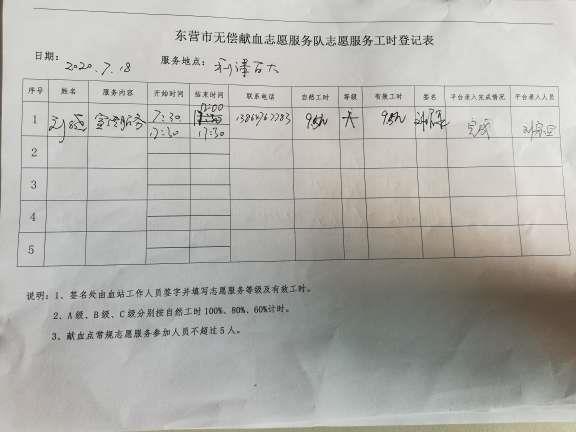 东营市无偿献血志愿服务队志愿服务工时登记表
日期：2020.7.18 服务地点：利津百大
序号 姓名 服务内容 开始时间 结束时间 联系电话 自然工时 等级 有效工时 签名 平台录入完成情况 平台录入人员
1 宣传服务 7:30 12:00 9 9 完成
17:30
2
3
4
5
说明：1、签名处由血站工作人员签字并填写志愿服务等级及有效工时。
2、A级、B级、C级分别按自然工时100%、80%、60%计时。
3、献血点常规志愿服务参加人员不超过5人。